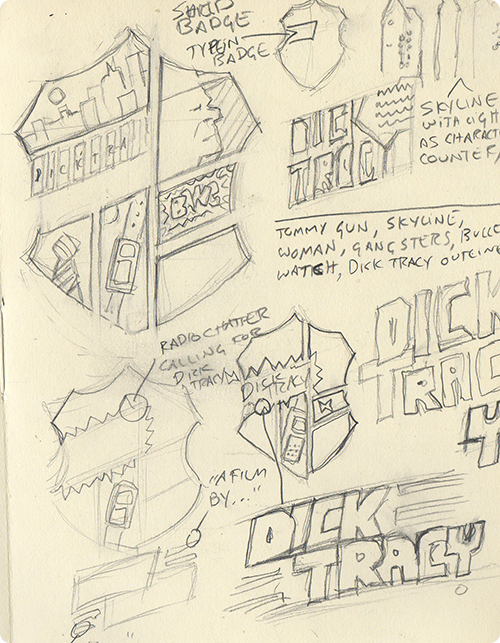 SHIELD
BADGE
TYPE IN
BADGE
DICK
TRACY
SKYLINE
WITH LIGH
AS CHARACT
COUNTEF,
TOMMY GUN, SKYLINE,
WOMAN, GANGSTERS, BULLE
WATCH, DICK TRACY OUTLINE
DICK TRA
BWG
RADIO CHATTER
CALLING FOR
DICK
TRACY
DICK
TRACY
DICK
TRACY
Y
"A FILM
BY..."
DICK
TRACY